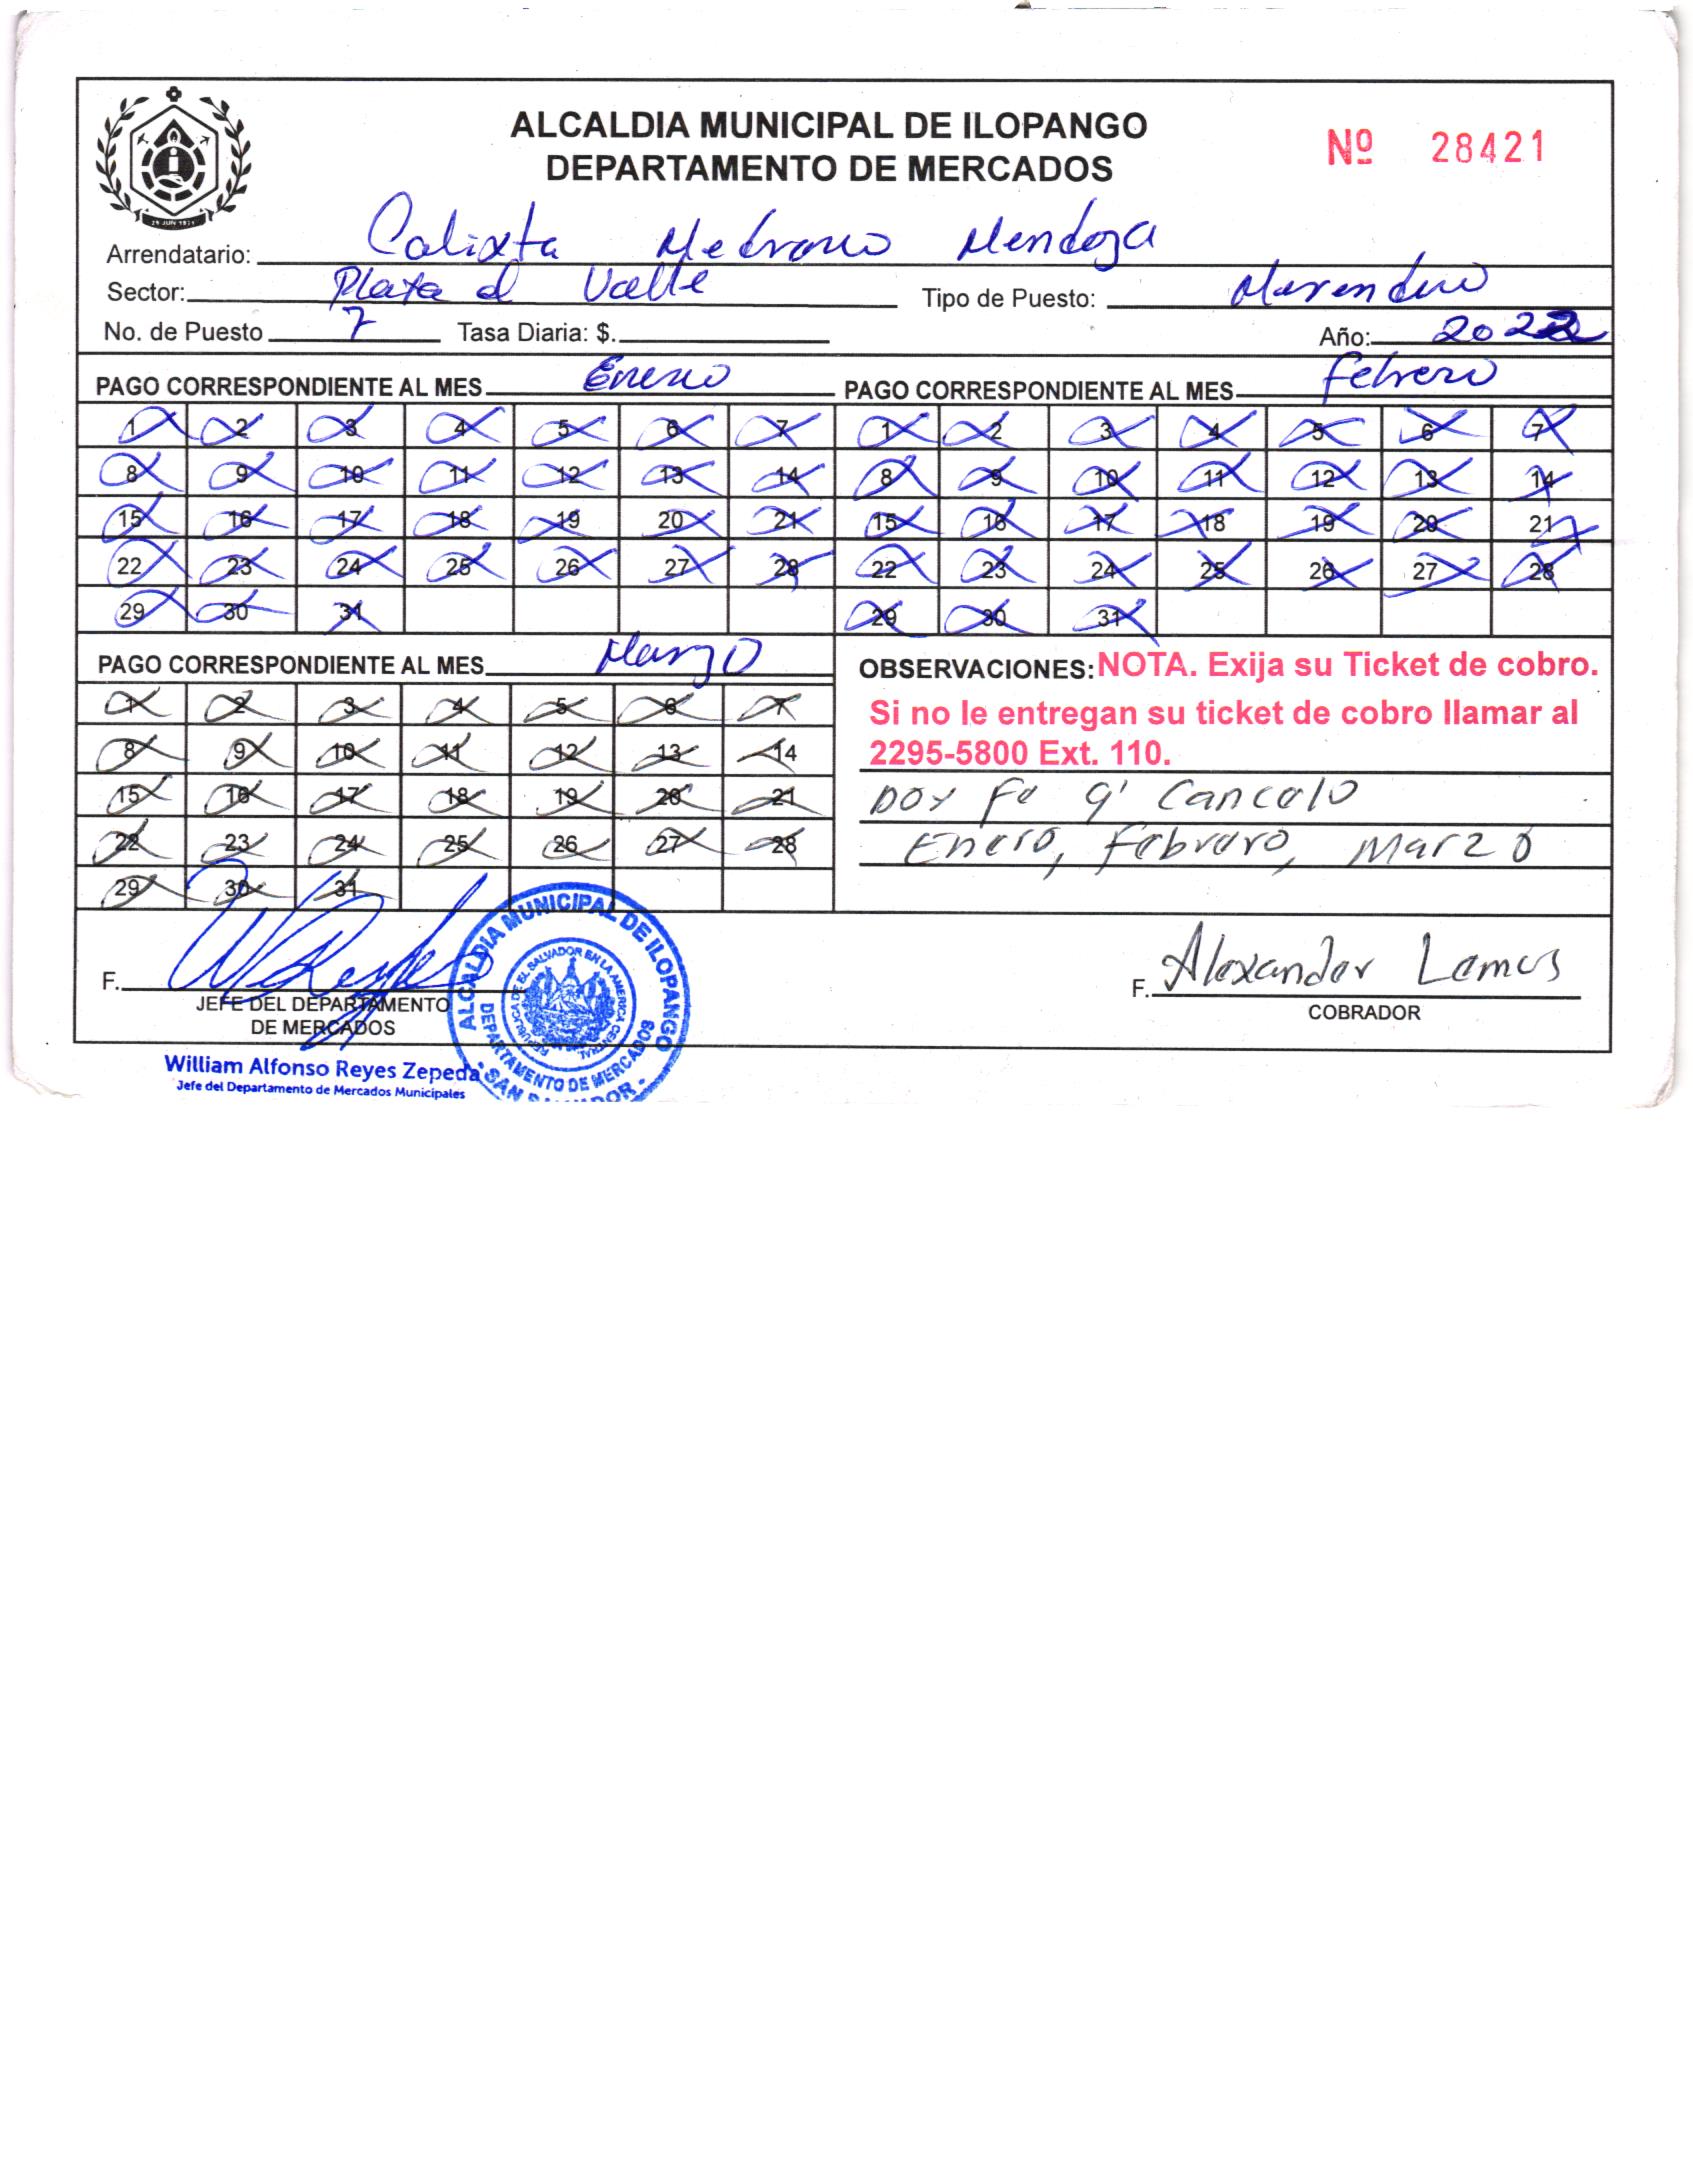 ALCALDIA MUNICIPAL DE ILOPANGO
DEPARTAMENTO DE MERCADOS
Nº 28421
29 JUN 1971
Arrendatario: Calixta Medrano Mendoza
Sector: Plaza el Valle Tipo de Puesto: Merendero
No. de Puesto 7 Tasa Diaria: $. Año: 2022
PAGO CORRESPONDIENTE AL MES Enero
1 2 3 4 5 6 7
8 9 10 11 12 13 14
15 16 17 18 19 20 21
22 23 24 25 26 27 28
29 30 31
PAGO CORRESPONDIENTE AL MES Febrero
1 2 3 4 5 6 7
8 9 10 11 12 13 14
15 16 17 18 19 20 21
22 23 24 25 26 27 28
29 30 31
PAGO CORRESPONDIENTE AL MES Marzo
1 2 3 4 5 6 7
8 9 10 11 12 13 14
15 16 17 18 19 20 21
22 23 24 25 26 27 28
29 30 31
OBSERVACIONES: NOTA. Exija su Ticket de cobro.
Si no le entregan su ticket de cobro llamar al
2295-5800 Ext. 110.
Doy Fe q' Cancelo
Enero, Febrero, Marzo
F.
JEFE DEL DEPARTAMENTO
DE MERCADOS
William Alfonso Reyes Zepeda
Jefe del Departamento de Mercados Municipales
ALCALDIA MUNICIPAL DE ILOPANGO
REPUBLICA DE EL SALVADOR EN LA AMERICA CENTRAL
DEPARTAMENTO DE MERCADOS
SAN SALVADOR
F. Alexander Lemus
COBRADOR